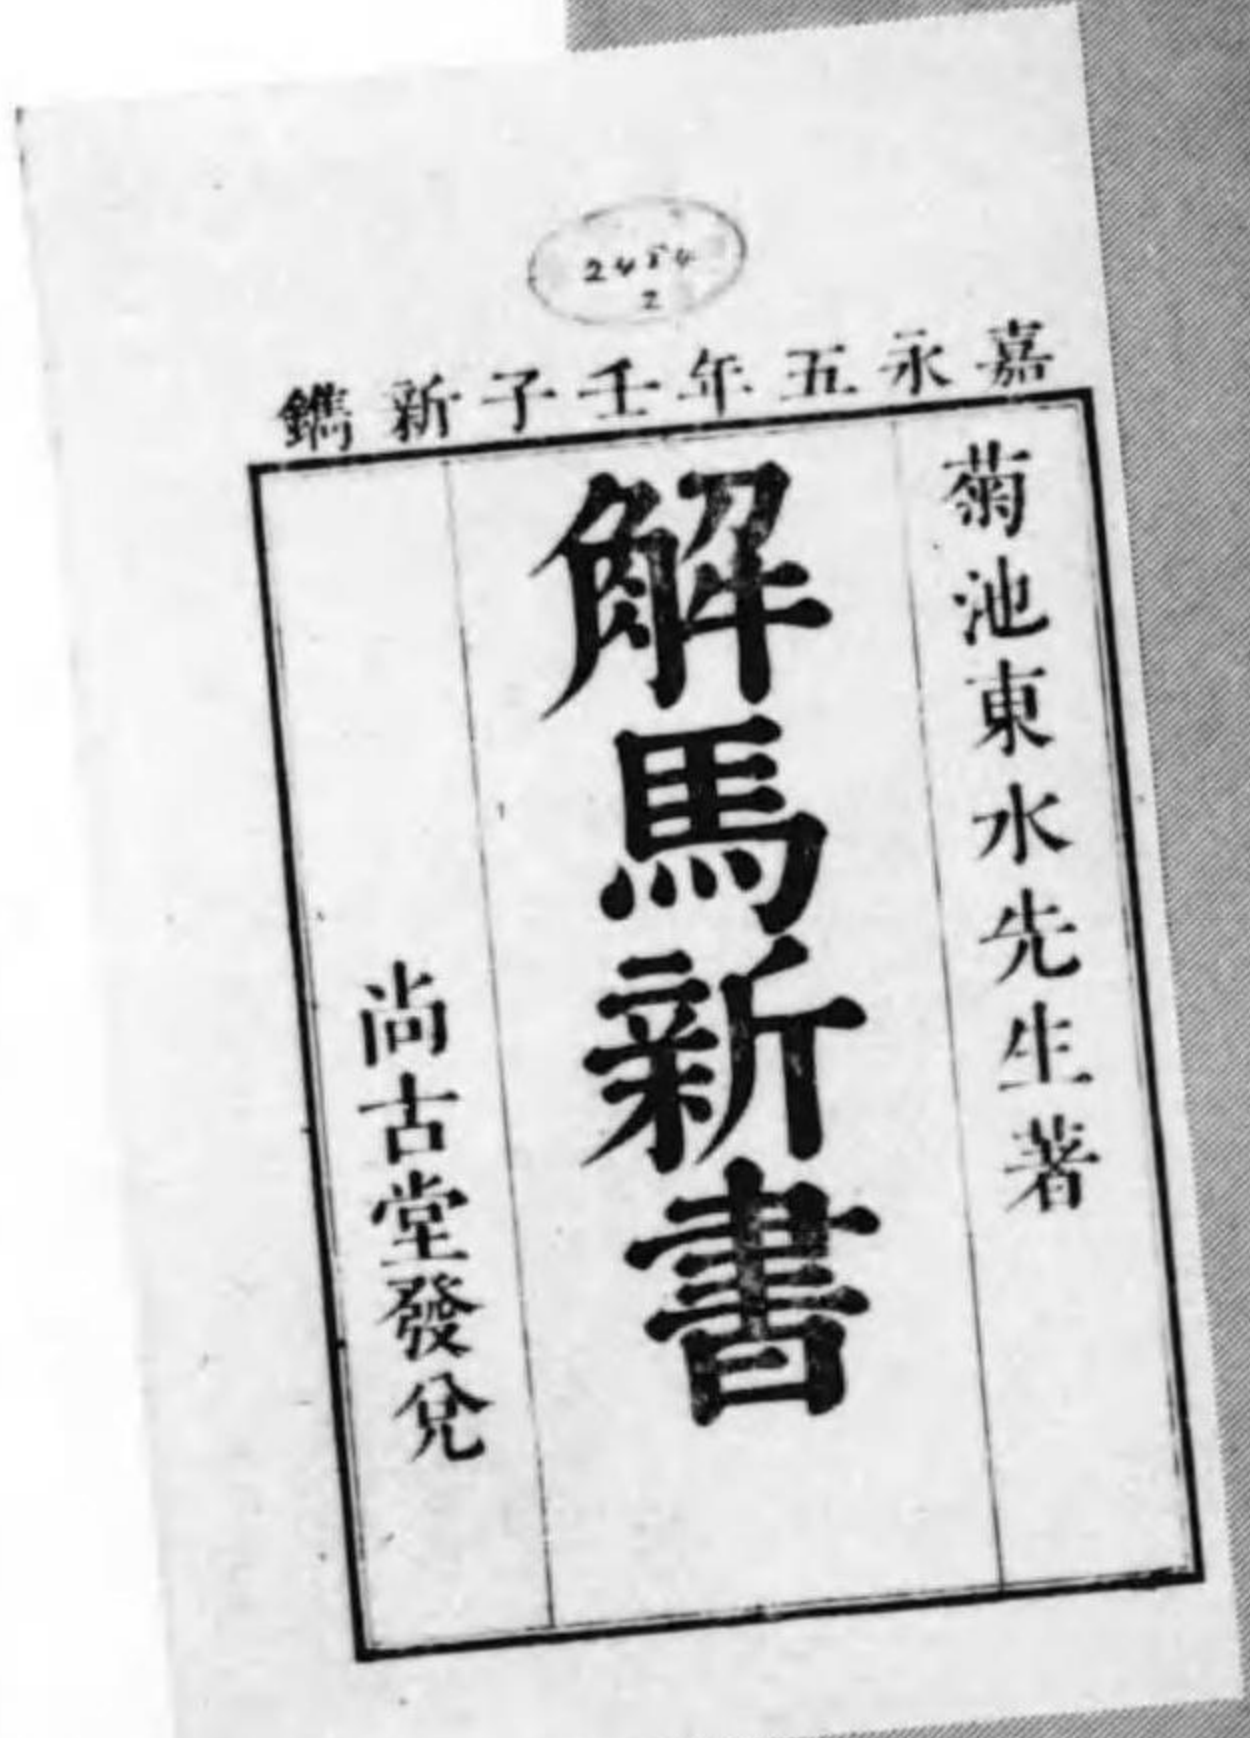 2454
2
嘉永五年壬子新鐫
菊池東水先生著
解馬新書
尚古堂發兌